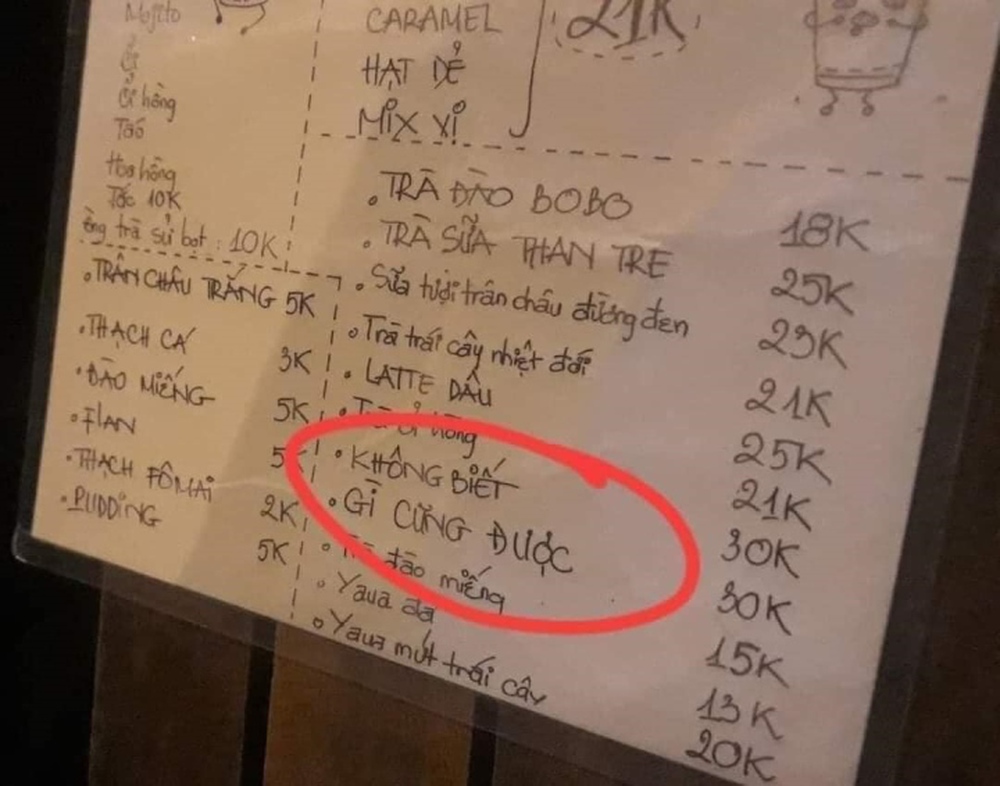 Mojito
ổi
ổi hồng
Táo
Hoa hồng
Tắc 10K
trà sủi bọt : 10K
.TRÂN CHÂU TRẮNG 5K
.THẠCH CÁ 3K
.ĐÀO MIẾNG 5K
.FLAN 5K
.THẠCH FÔMAI 2K
.PUDDING 5K
CARAMEL
HẠT DẺ
MIX VỊ
21K
.TRÀ ĐÀO BOBO 18K
.TRÀ SỮA THAN TRE 25K
. Sữa tươi trân châu đường đen 23K
. Trà trái cây nhiệt đới 21K
. LATTE DÂU 25K
. Trà ổi hồng 21K
. KHÔNG BIẾT 30K
. GÌ CŨNG ĐƯỢC 30K
. Trà đào miếng 15K
. Yaua đá 13K
. Yaua mứt trái cây 20K